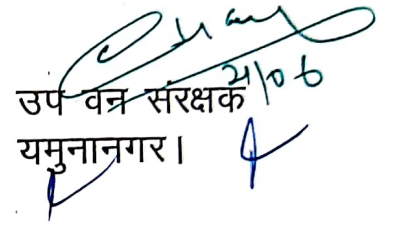 21/06
उप वन संरक्षक
यमुनानगर।